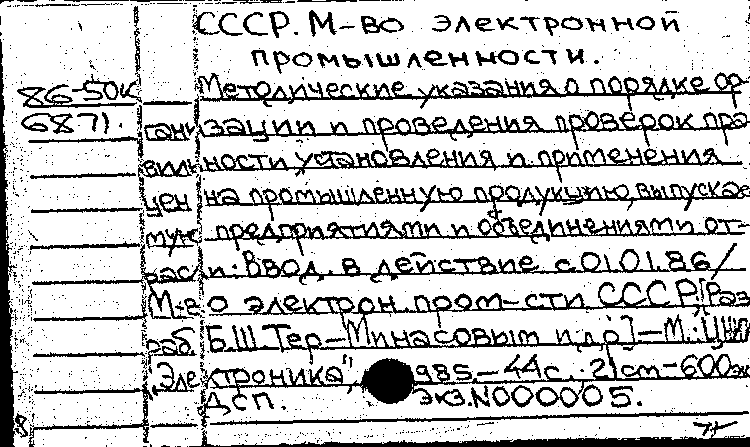 СССР. М-во электронной
промышленности.
86-50к Методические указания о порядке ор-
6871. ганизации и проведения проверок пра
вильности установления и применения
цен на промышленную продукцию, выпускае
мую предприятиями и объединениями от-
расли: Ввод. в действие с 01.01.86/
М-во электрон. пром-сти СССР; [Раз
раб. Б.Ш. Тер-Минасовым и др.] - М.: ЦНИИ
"Электроника", 1985. - 44 с.; 21 см - 600 эк
ДСП. Экз. N000005.